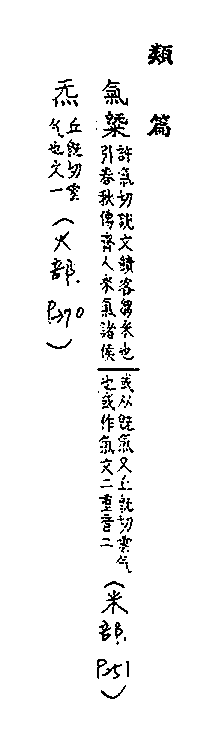 類篇
氣䊠
許氣切說文饋客芻米也
引春秋傳齊人來氣諸侯
或从旣氣又丘旣切雲气
也或作氣文二重音二
(米部. P251)
炁
丘旣切雲
气也文一
(火部. P370)